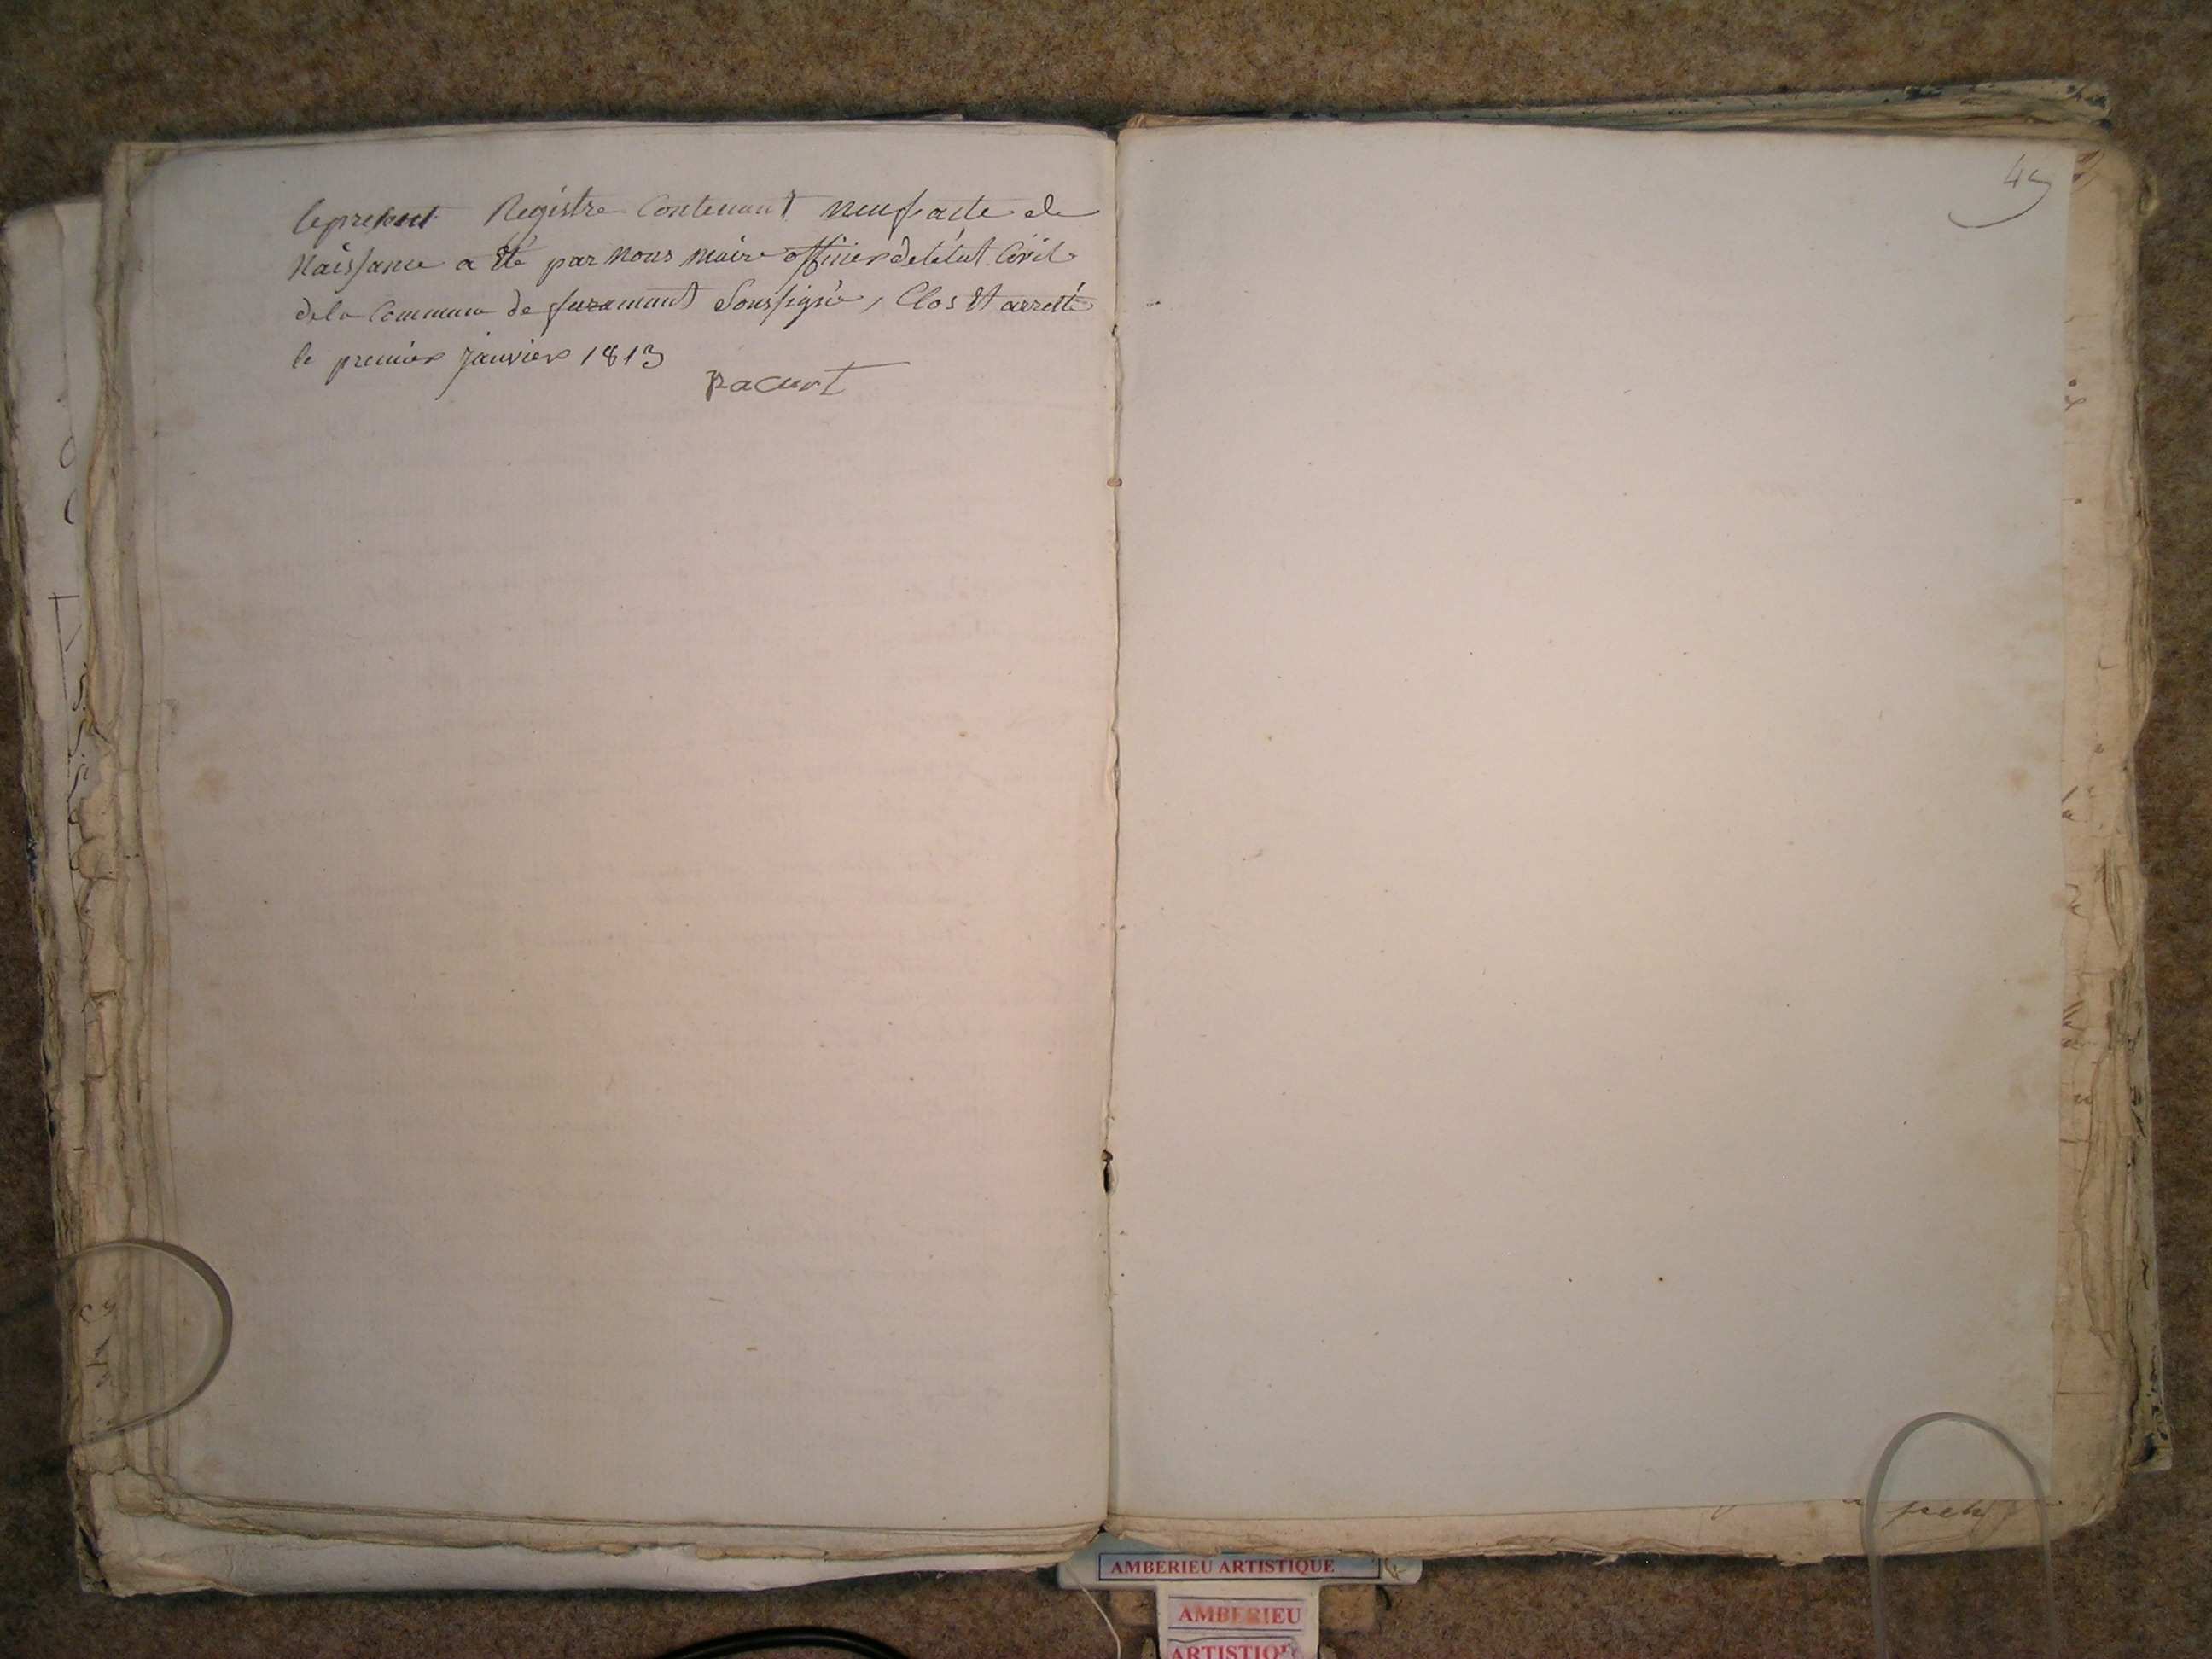 le present Registre Contenant neuf acte de
Naissance a Eté par Nous Maire officier de létat Civil
de la Commune de faramant Soussigné, Clos Et arresté
le premier janvier 1813
pacurt
AMBERIEU ARTISTIQUE
AMBERIEU
ARTISTIQUE